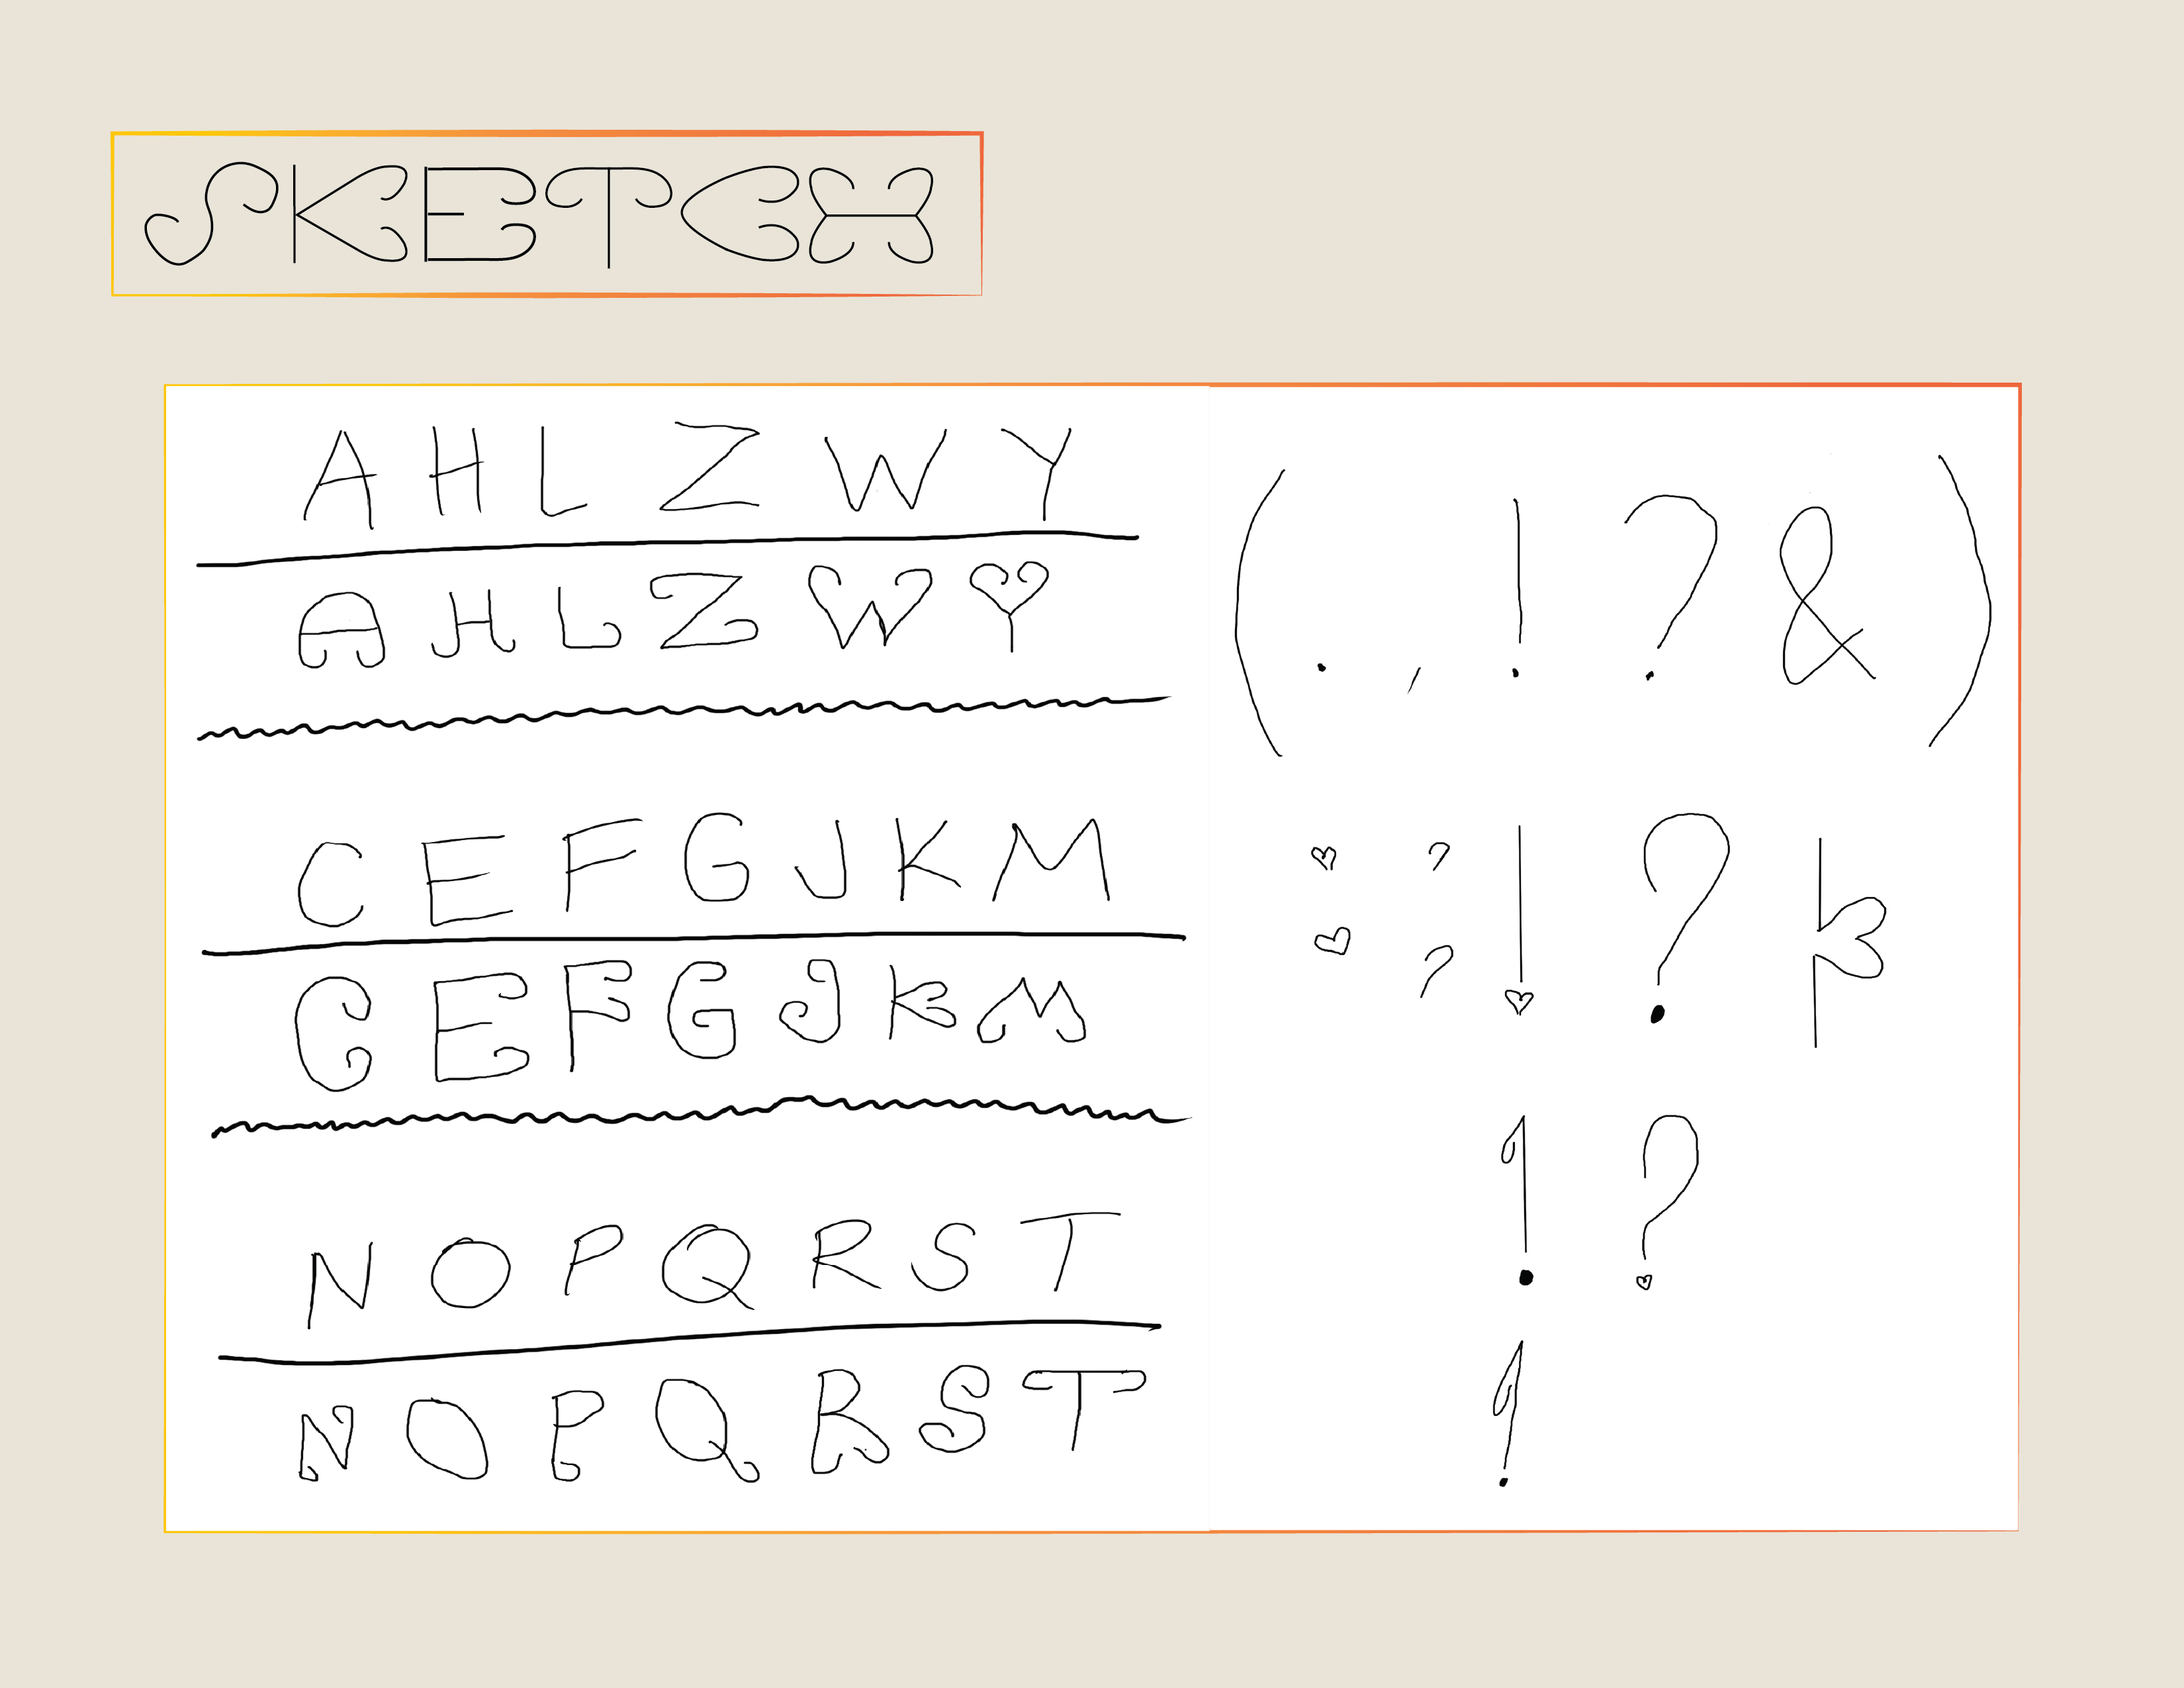 SKETCH
A H L Z W Y
A H L Z W Y
C E F G J K M
C E F G J K M
N O P Q R S T
N O P Q R S T
( . , ! ? & )
, ! ?
,
! ?
!